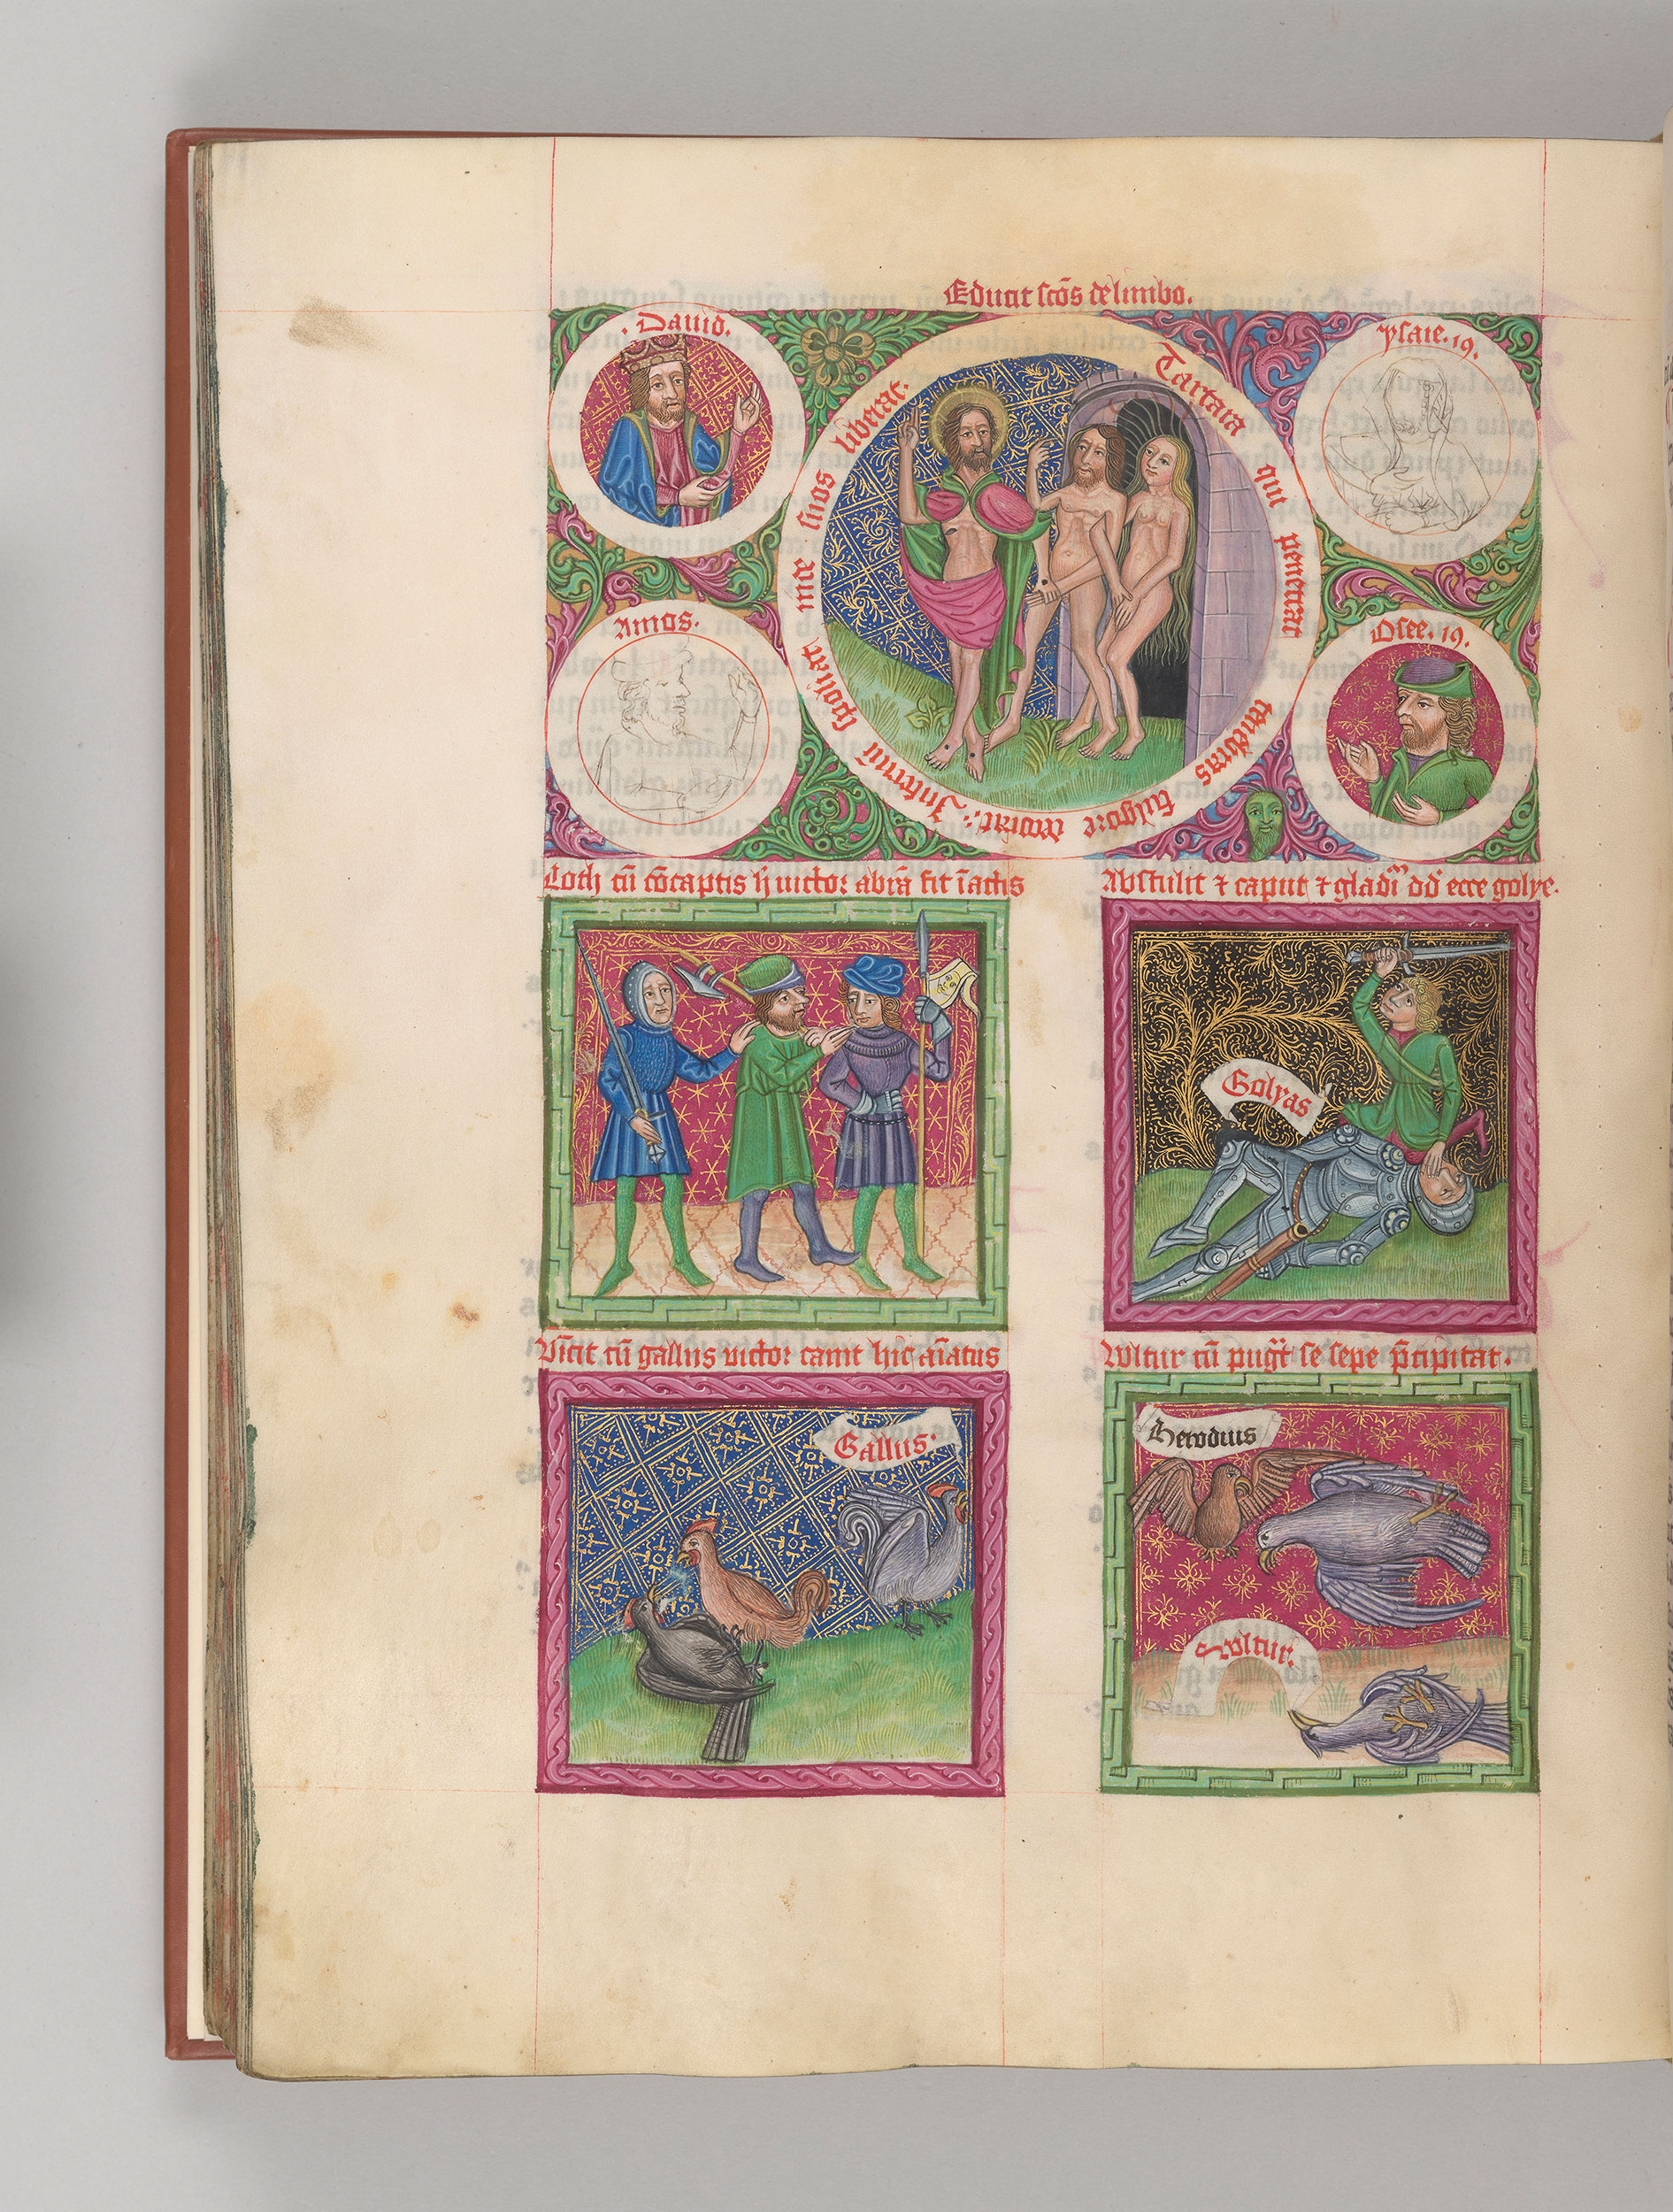 Educit scōs de limbo.
. Dauid.
ysaie . 19 .
Tartara qui penetrat tenebras fulgore decorat: Infernū spoliat
inde suos liberat.
Amos.
Osee . 19 .
Loth cū cōcaptis h uictor abrā fit ī actis
Abstulit ⁊ caput ⁊ gladī dd ecce golye.
Golyas
Vīcit cū gallus uictor canit hic aīatus
Vltur cū pugt se sepe p̄cipitat .
Gallus .
Herodius
Vltur .